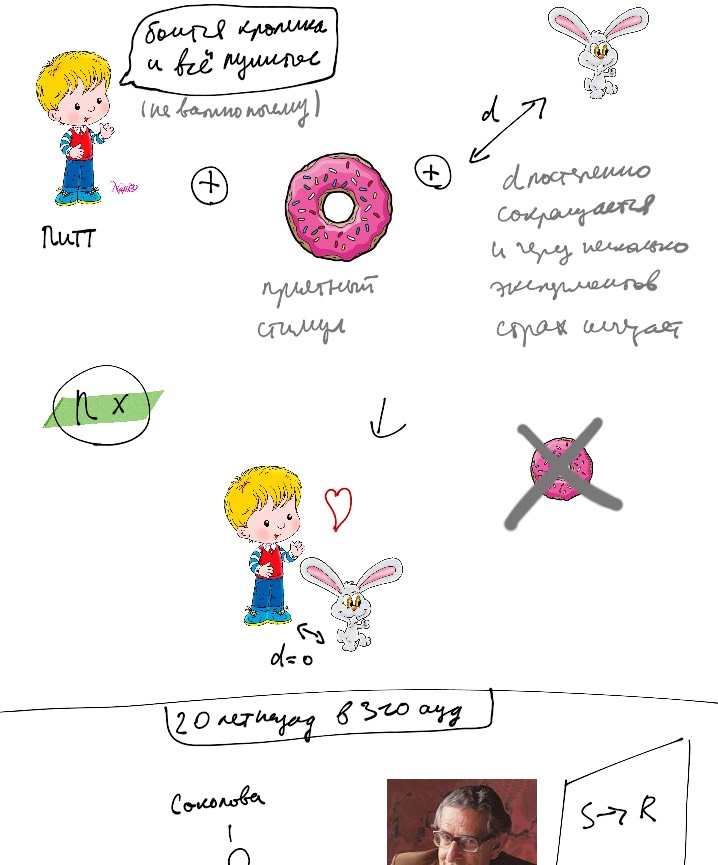 боится кролика
и всё пушистое
(не важно почему)
d
+
+
Питт
приятный
стимул
d постепенно
сокращается
и через несколько
экспериментов
страх исчезает
n x
d=0
20 лет назад в 310 ауд
Соколова
S→R